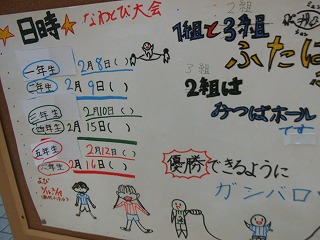 日時
なわとび大会
一年生 2月8日( )
二年生 2月9日( )
三年生 2月10日( )
四年生 2月15日( )
五年生 2月12日( )
六年生 2月16日( )
よび
2組
1組と3組
ふたば
3組
2組は
みつばホール
です
優勝できるように
ガンバロ